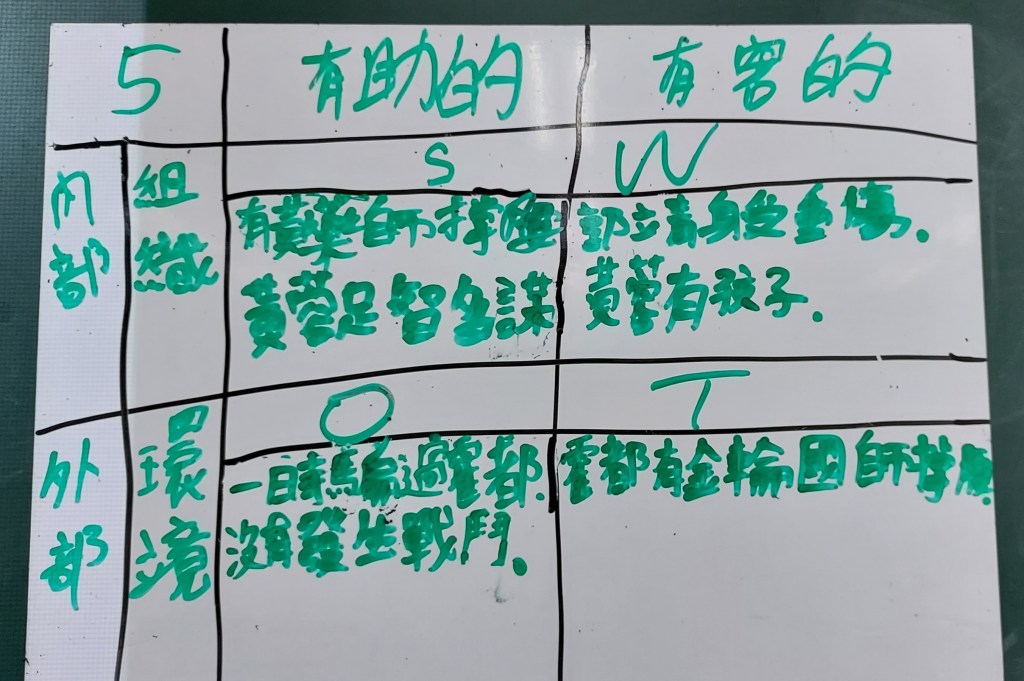 5 有助的 有害的
S W
內部 組織
有黃藥師撐腰
黃蓉足智多謀
郭靖身受重傷.
黃蓉有孩子.
O T
外部 環境
一時騙過霍都.
沒有發生戰鬥.
霍都有金輪國師撐腰.